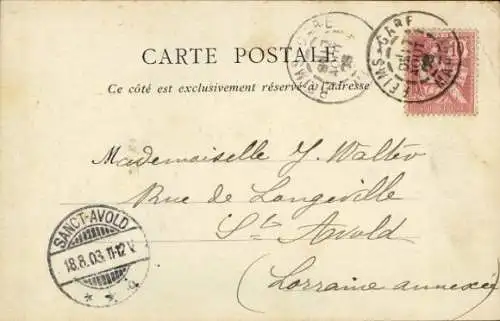 CARTE POSTALE
Ce côté est exclusivement réservé à l'adresse
REIMS-GARE
REIMS-GARE
10
Mademoiselle J. Walter
Rue de Longeville
St Avold
(Lorraine annexée)
SANCT-AVOLD
18.8.03.11-12V.